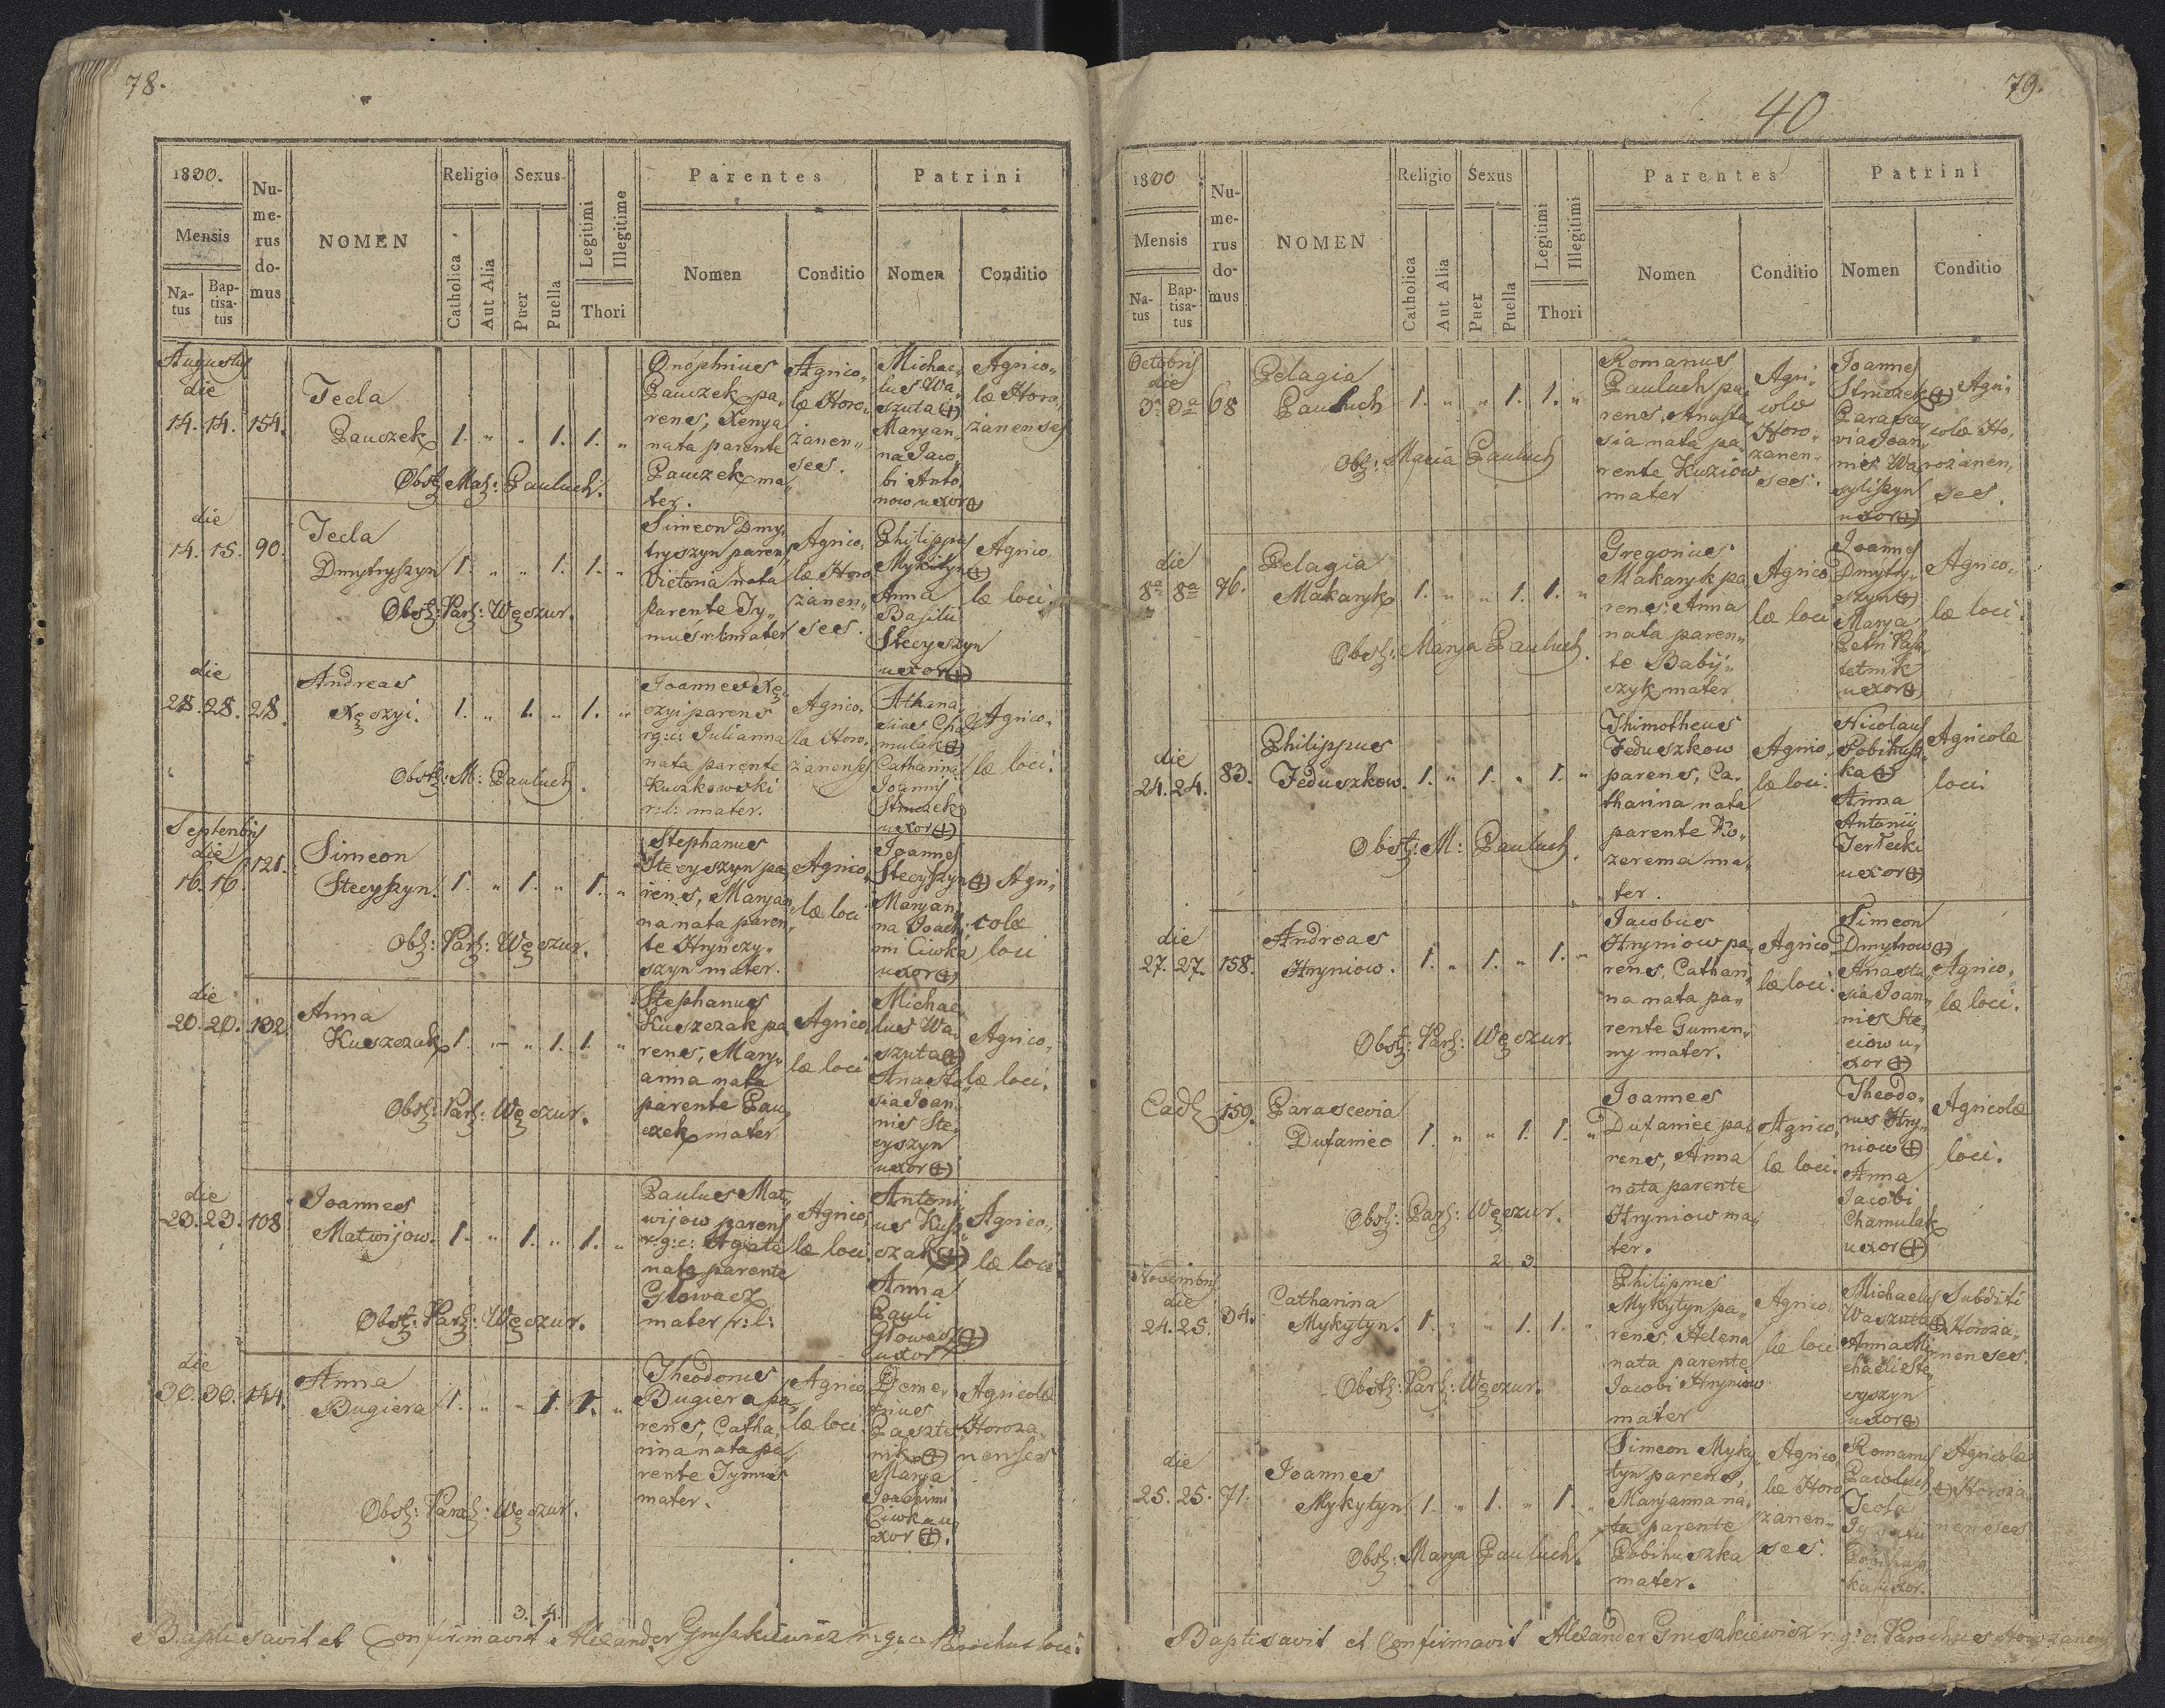 78.
1830.
Mensis
Na-
tus
Bap-
tisa-
tus
Nu-
me-
rus
do-
mus
NOMEN
Religio
Catholica
Aut Alia
Sexus
Puer
Puella
Legitimi
Illegitime
Thori
Parentes
Nomen
Conditio
Patrini
Nomen
Conditio
Augusti
die
14. 14. 154.
Tecla
Pauczek 1. " " 1. 1. "
Obst: Mar: Pauluch.
Onophrius
Pauczek pa„
rens, Xenya
nata parente
Pauczek ma„
ter.
Agrico„
læ Horo„
żanen„
ses.
Michae„
lus Wa„
szuta (+)
Maryan„
na Jaco„
bi Anto„
now uxor (+)
Agrico„
læ Horo„
żanenses
die
14. 15. 90.
Tecla
Dmytryszyn 1. " " 1. 1. "
Obst: Parf: Węszur.
Simeon Dmy„
tryszyn parens
Victoria nata
parente Ty„
mus r:l: mater
Agrico„
læ Horo„
żanen„
ses.
Philippus
Mykityn (+)
Anna
Basilii
Stecyszyn
uxor (+)
Agrico„
læ loci.
die
28. 28. 28.
Andreas
Xęszyi. 1. " 1. " 1. "
Obst: M: Pauluch.
Joannes Xę„
szyi parens
r:g:c: Julianna
nata parente
Kuczkowski
r:l: mater.
Agrico„
læ Horo„
żanenses
Athana„
sius Cha„
mulak (+)
Catharina
Joannis
Struczek
uxor (+)
Agrico„
læ loci.
Septembris
die
16. 16. 121.
Simeon
Stecyszyn. 1. " 1. " 1. "
Obst: Parf: Węszur.
Stephanus
Stecyszyn pa„
rens, Maryan„
na nata paren„
te Hrynczy„
szyn mater.
Agrico„
læ loci
Joannes
Stecyszyn (+)
Maryan„
na Joachi„
mi Ciwka
uxor (+)
Agri„
colæ
loci
die
20. 20. 132.
Anna
Kuszczak 1. " " 1. 1. "
Obst: Parf: Węszur.
Stephanus
Kuszczak pa„
rens, Mary„
anna nata
parente Pau„
czek mater
Agrico„
læ loci
Michae„
lus Wa„
szuta (+)
Anasta„
sia Joan„
nis Ste„
cyszyn
uxor (+)
Agrico„
læ loci.
die
23. 23. 108.
Joannes
Matwijow. 1. " 1. " 1. "
Obst: Parf: Węszur.
Paulus Mat„
wijow parens
r:g:c: Agata
nata parente
Głowacz
mater r:l:
Agrico„
læ loci.
Antoni„
us Kusz„
czak (+)
Anna
Pauli
Głowacz (+)
uxor
Agrico„
læ loci
die
30. 30. 144.
Anna
Bugiera 1. " " 1. 1. "
Obst: Parf: Węszur.
Theodorus
Bugiera pa„
rens, Catha„
rina nata pa„
rente Tymus
mater.
Agrico„
læ loci.
Deme„
trius
Paszte„
nik (+)
Marya
Joachimi
Ciwka u„
xor (+).
Agricolæ
Horoza„
nenses
3. 4.
Baptisavit et Confirmavit Alexander Gruszkiewicz r:g:c: Parochus loci

79.
40
1830
Mensis
Na-
tus
Bap-
tisa-
tus
Nu-
me-
rus
do-
mus
NOMEN
Religio
Catholica
Aut Alia
Sexus
Puer
Puella
Legitimi
Illegitimi
Thori
Parentes
Nomen
Conditio
Patrini
Nomen
Conditio
Octobris
die
3a 3a 68
Pelagia
Pauluch 1. " " 1. 1. "
Obst: Maria Pauluch
Romanus
Pauluch pa„
rens, Anasta„
sia nata pa„
rente Kuziów
mater
Agri„
colæ
Horo„
żanen„
ses.
Joannes
Struczek (+)
Parasce„
via Joan„
nis Wa„
sylszyn
uxor (+)
Agri„
colæ Ho„
rożanen„
ses.
die
8a 8a 76.
Pelagia
Makaryk 1. " " 1. 1. "
Obst: Marya Pauluch.
Gregorius
Makaryk pa„
rens, Anna
nata paren„
te Babij„
czyk mater
Agrico„
læ loci
Joannes
Dmytry„
szyn (+)
Marya
Petri Pasz„
tetnik
uxor (+)
Agrico„
læ loci.
die
24. 24. 83.
Philippus
Feduszkow. 1. " 1. " 1. "
Obst: M: Pauluch.
Thimotheus
Feduszkow
parens, Ca„
tharina nata
parente Ko„
zerema ma„
ter.
Agrico„
læ loci.
Nicolaus
Pobihusz„
ka (+)
Anna
Antonii
Terlecki
uxor (+)
Agricolæ
loci
die
27. 27. 158.
Andreas
Hryniow. 1. " 1. " 1. "
Obst: Parf: Węszur.
Jacobus
Hryniow pa„
rens, Cathari„
na nata pa„
rente Gumen„
ny mater.
Agrico„
læ loci.
Simeon
Dmytrow (+)
Anasta„
sia Joan„
nis Ste„
ciow u„
xor (+)
Agrico„
læ loci.
Ead: 159.
Parascevia
Dufaniec 1. " " 1. 1. "
Obst: Parf: Węszur.
Joannes
Dufaniec pa„
rens, Anna
nata parente
Hryniow ma„
ter.
Agrico„
læ loci.
Theodo„
rus Hry„
niow (+)
Anna
Jacobi
Chamulak
uxor (+)
Agricolæ
loci.
2 3
Novembris
die
24. 25. 34.
Catharina
Mykytyn. 1. " " 1. 1. "
Obst: Parf: Węszur.
Philippus
Mykytyn pa„
rens, Helena
nata parente
Jacobi Hryniow
mater
Agrico„
læ loci.
Michaelus
Waszuta (+)
Anna Mi„
chaeli Ste„
cyszyn
uxor (+)
Subditi
Horoża„
nenses.
die
25. 25. 71.
Joannes
Mykytyn 1. " 1. " 1. "
Obst: Marya Pauluch.
Simeon Myky„
tyn parens,
Maryanna na„
ta parente
Pobihuszka
mater.
Agrico„
læ Horo„
żanen„
ses.
Romanus
Pauluch (+)
Tecla
uxor.
Agricolæ
Horoża„
nenses
Baptisavit et Confirmavit Alexander Gruszkiewicz r:g:c: Parochus